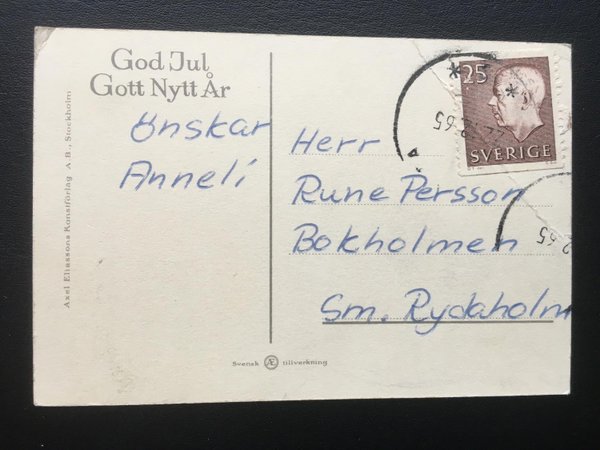 God Jul
Gott Nytt År
Önskar
Anneli
Herr
Rune Persson
Bokholmen
Sm. Rydaholm
25
SVERIGE
65
65
Axel Eliassons Konstförlag A. B., Stockholm
Svensk Æ tillverkning